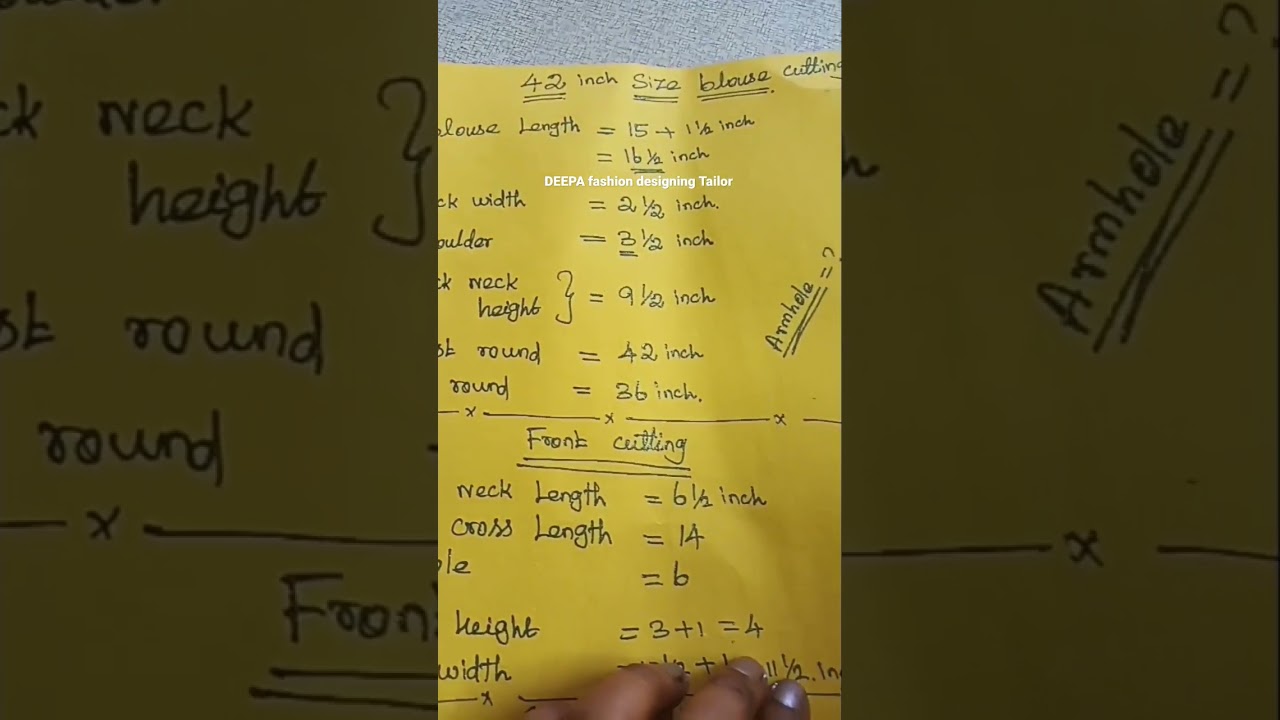 42 inch Size blouse cutting
blouse Length = 15 + 1 1/2 inch
= 16 1/2 inch
DEEPA fashion designing Tailor
ck width = 2 1/2 inch.
oulder = 3 1/2 inch
ck Neck height } = 9 1/2 inch
Armhole = ?
st round = 42 inch
round = 36 inch.
x x x
Front cutting
Neck Length = 6 1/2 inch
cross Length = 14
le = 6
height = 3 + 1 = 4
width = 1/2 + 11 1/2. in
x